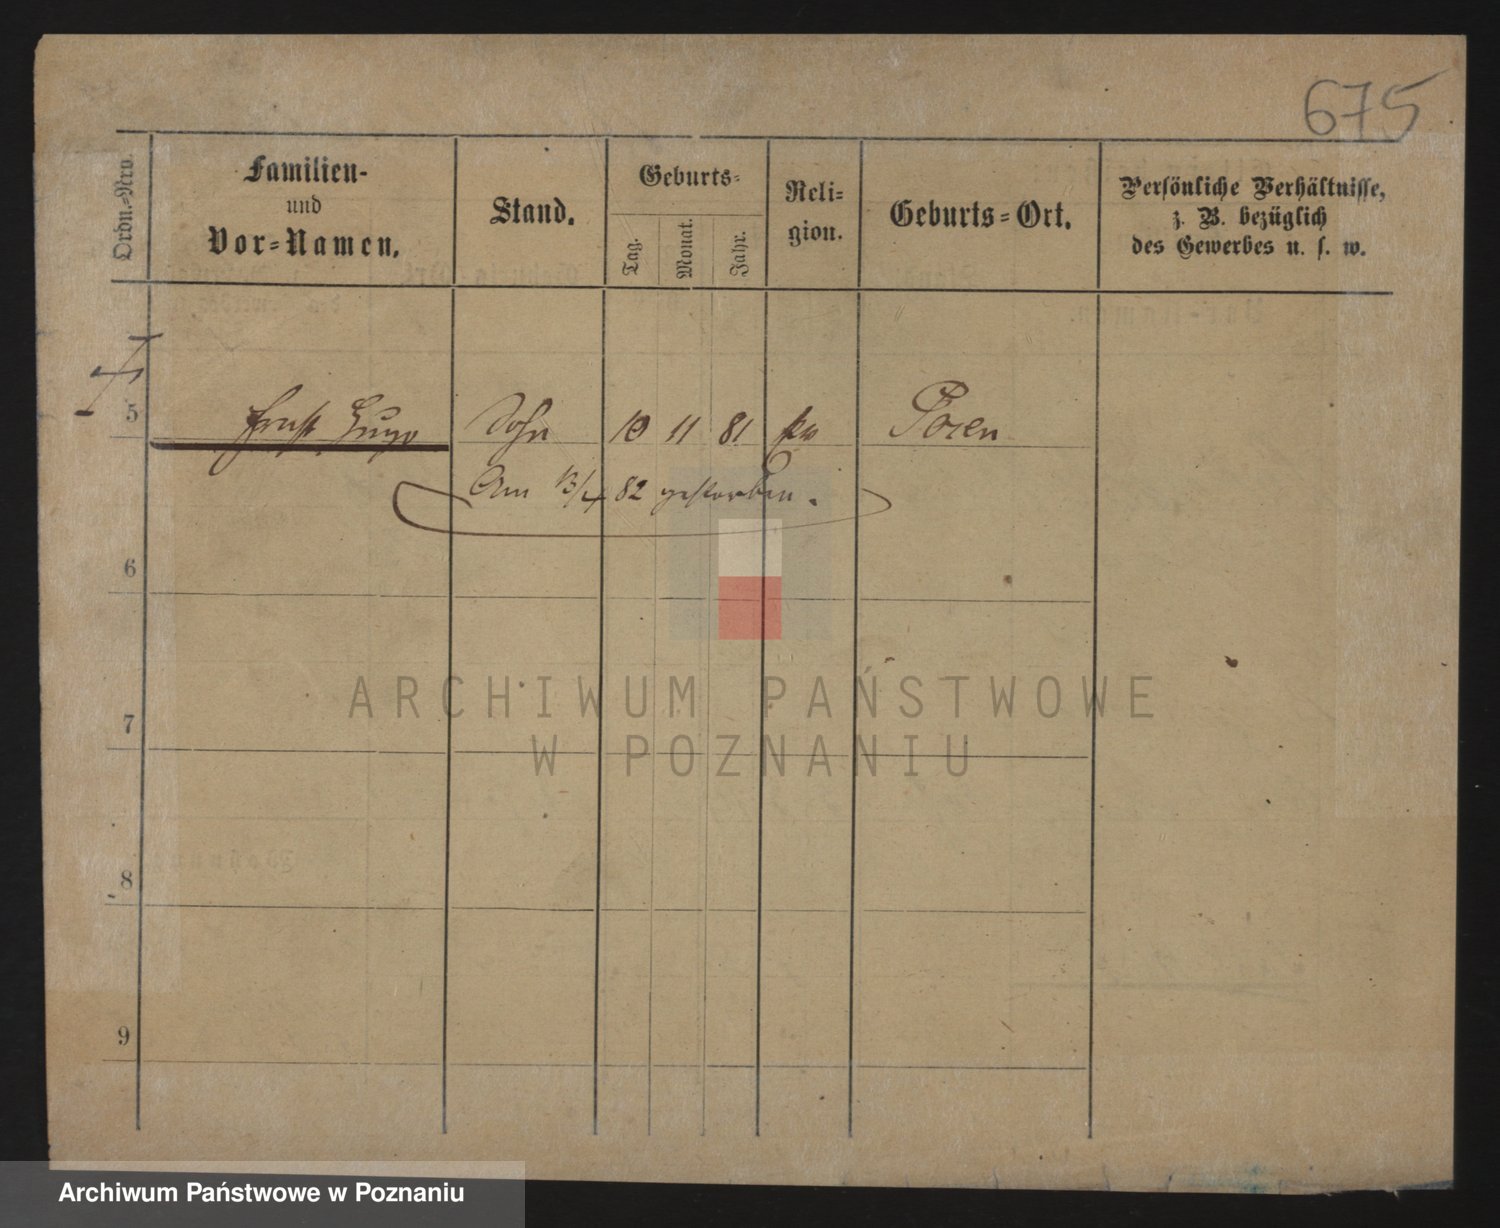 675
Ordn.-Nro.
Familien-
und
Vor-Namen.
Stand.
Geburts-
Tag.
Monat.
Jahr.
Reli-
gion.
Geburts-Ort.
Persönliche Verhältnisse,
z. B. bezüglich
des Gewerbes u. s. w.
5 Ernst Hugo Sohn 10 11 81 Posen
Am 13/4 82 gestorben.
6
7
8
9
ARCHIWUM PAŃSTWOWE
W POZNANIU
Archiwum Państwowe w Poznaniu